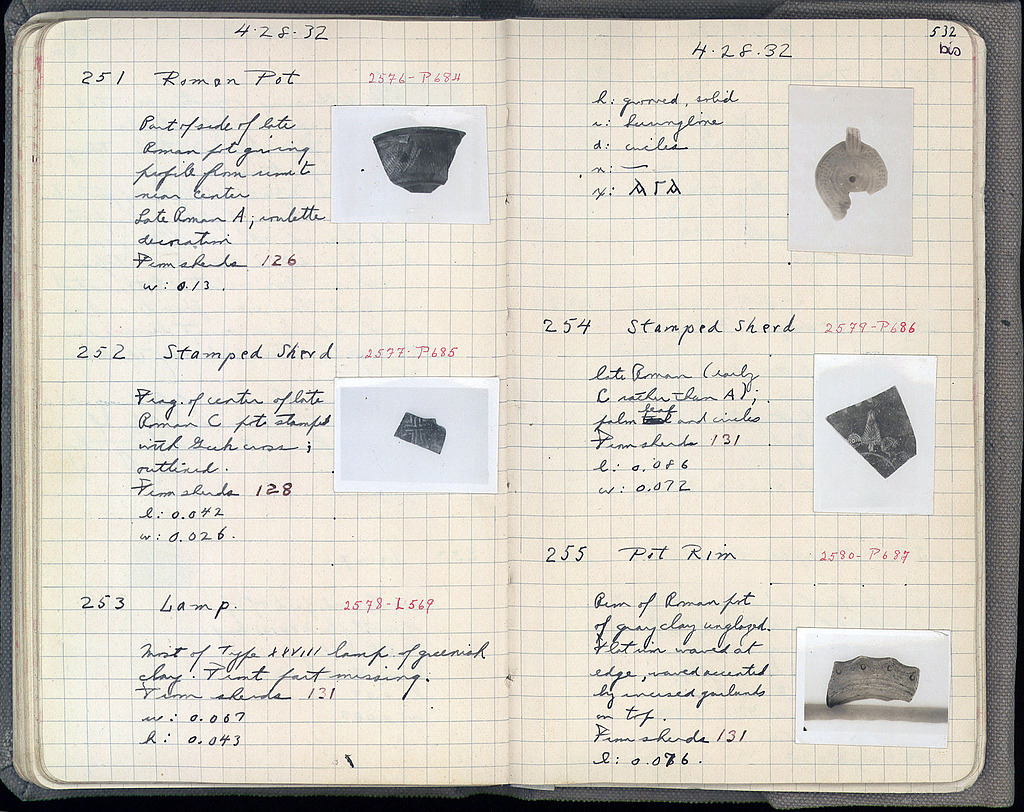 4·28·32
251 Roman Pot 2576-P684
Part of side of late
Roman pot giving
profile from rim to
near center
Late Roman A; roulette
decoration
From sherds 126
w: 0.13.
252 Stamped Sherd 2577-P685
Frag. of center of late
Roman C pot stamped
with Greek cross;
outlined.
From sherds 128
l: 0.042
w: 0.026.
253 Lamp. 2578-L569
Most of Type XXVIII lamp of greenish
clay. Front part missing.
From sherds 131
w: 0.067
h: 0.043
532
bis
4·28·32
h: grooved, solid
r: herringbone
d: circles
n: —
254 Stamped Sherd 2579-P686
late Roman (early
C rather than A);
palm leaf and circles
From sherds 131
l: 0.086
w: 0.072
255 Pot Rim 2580-P687
Rim of Roman pot
of gray clay unglazed.
Flat rim waved at
edge, waved accented
by incised garlands
on top.
From sherds 131
l: 0.076.